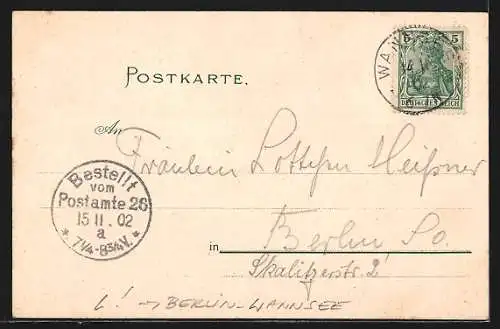 5 5
WAN
DEUTSCHES REICH
POSTKARTE.
An
Fräulein Lottchen Meißner
Bestellt
vom
Postamte 26
15 11. 02
a
* 7¼-8¾V. *
in Berlin, So.
Skalitzerstr. 2
L! → BERLIN-WANNSEE